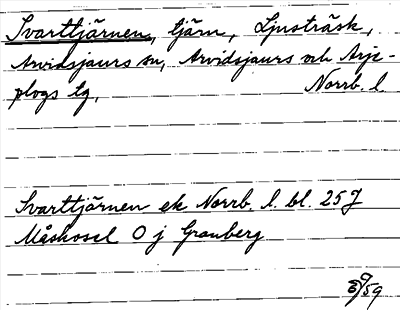 Svarttjärnen, tjärn, Ljusträsk,
Arvidsjaurs sn, Arvidsjaurs och Arje-
plogs lg, Norrb. l
Svarttjärnen ek Norrb. l. bl. 25J
Måskosel O j Granberg